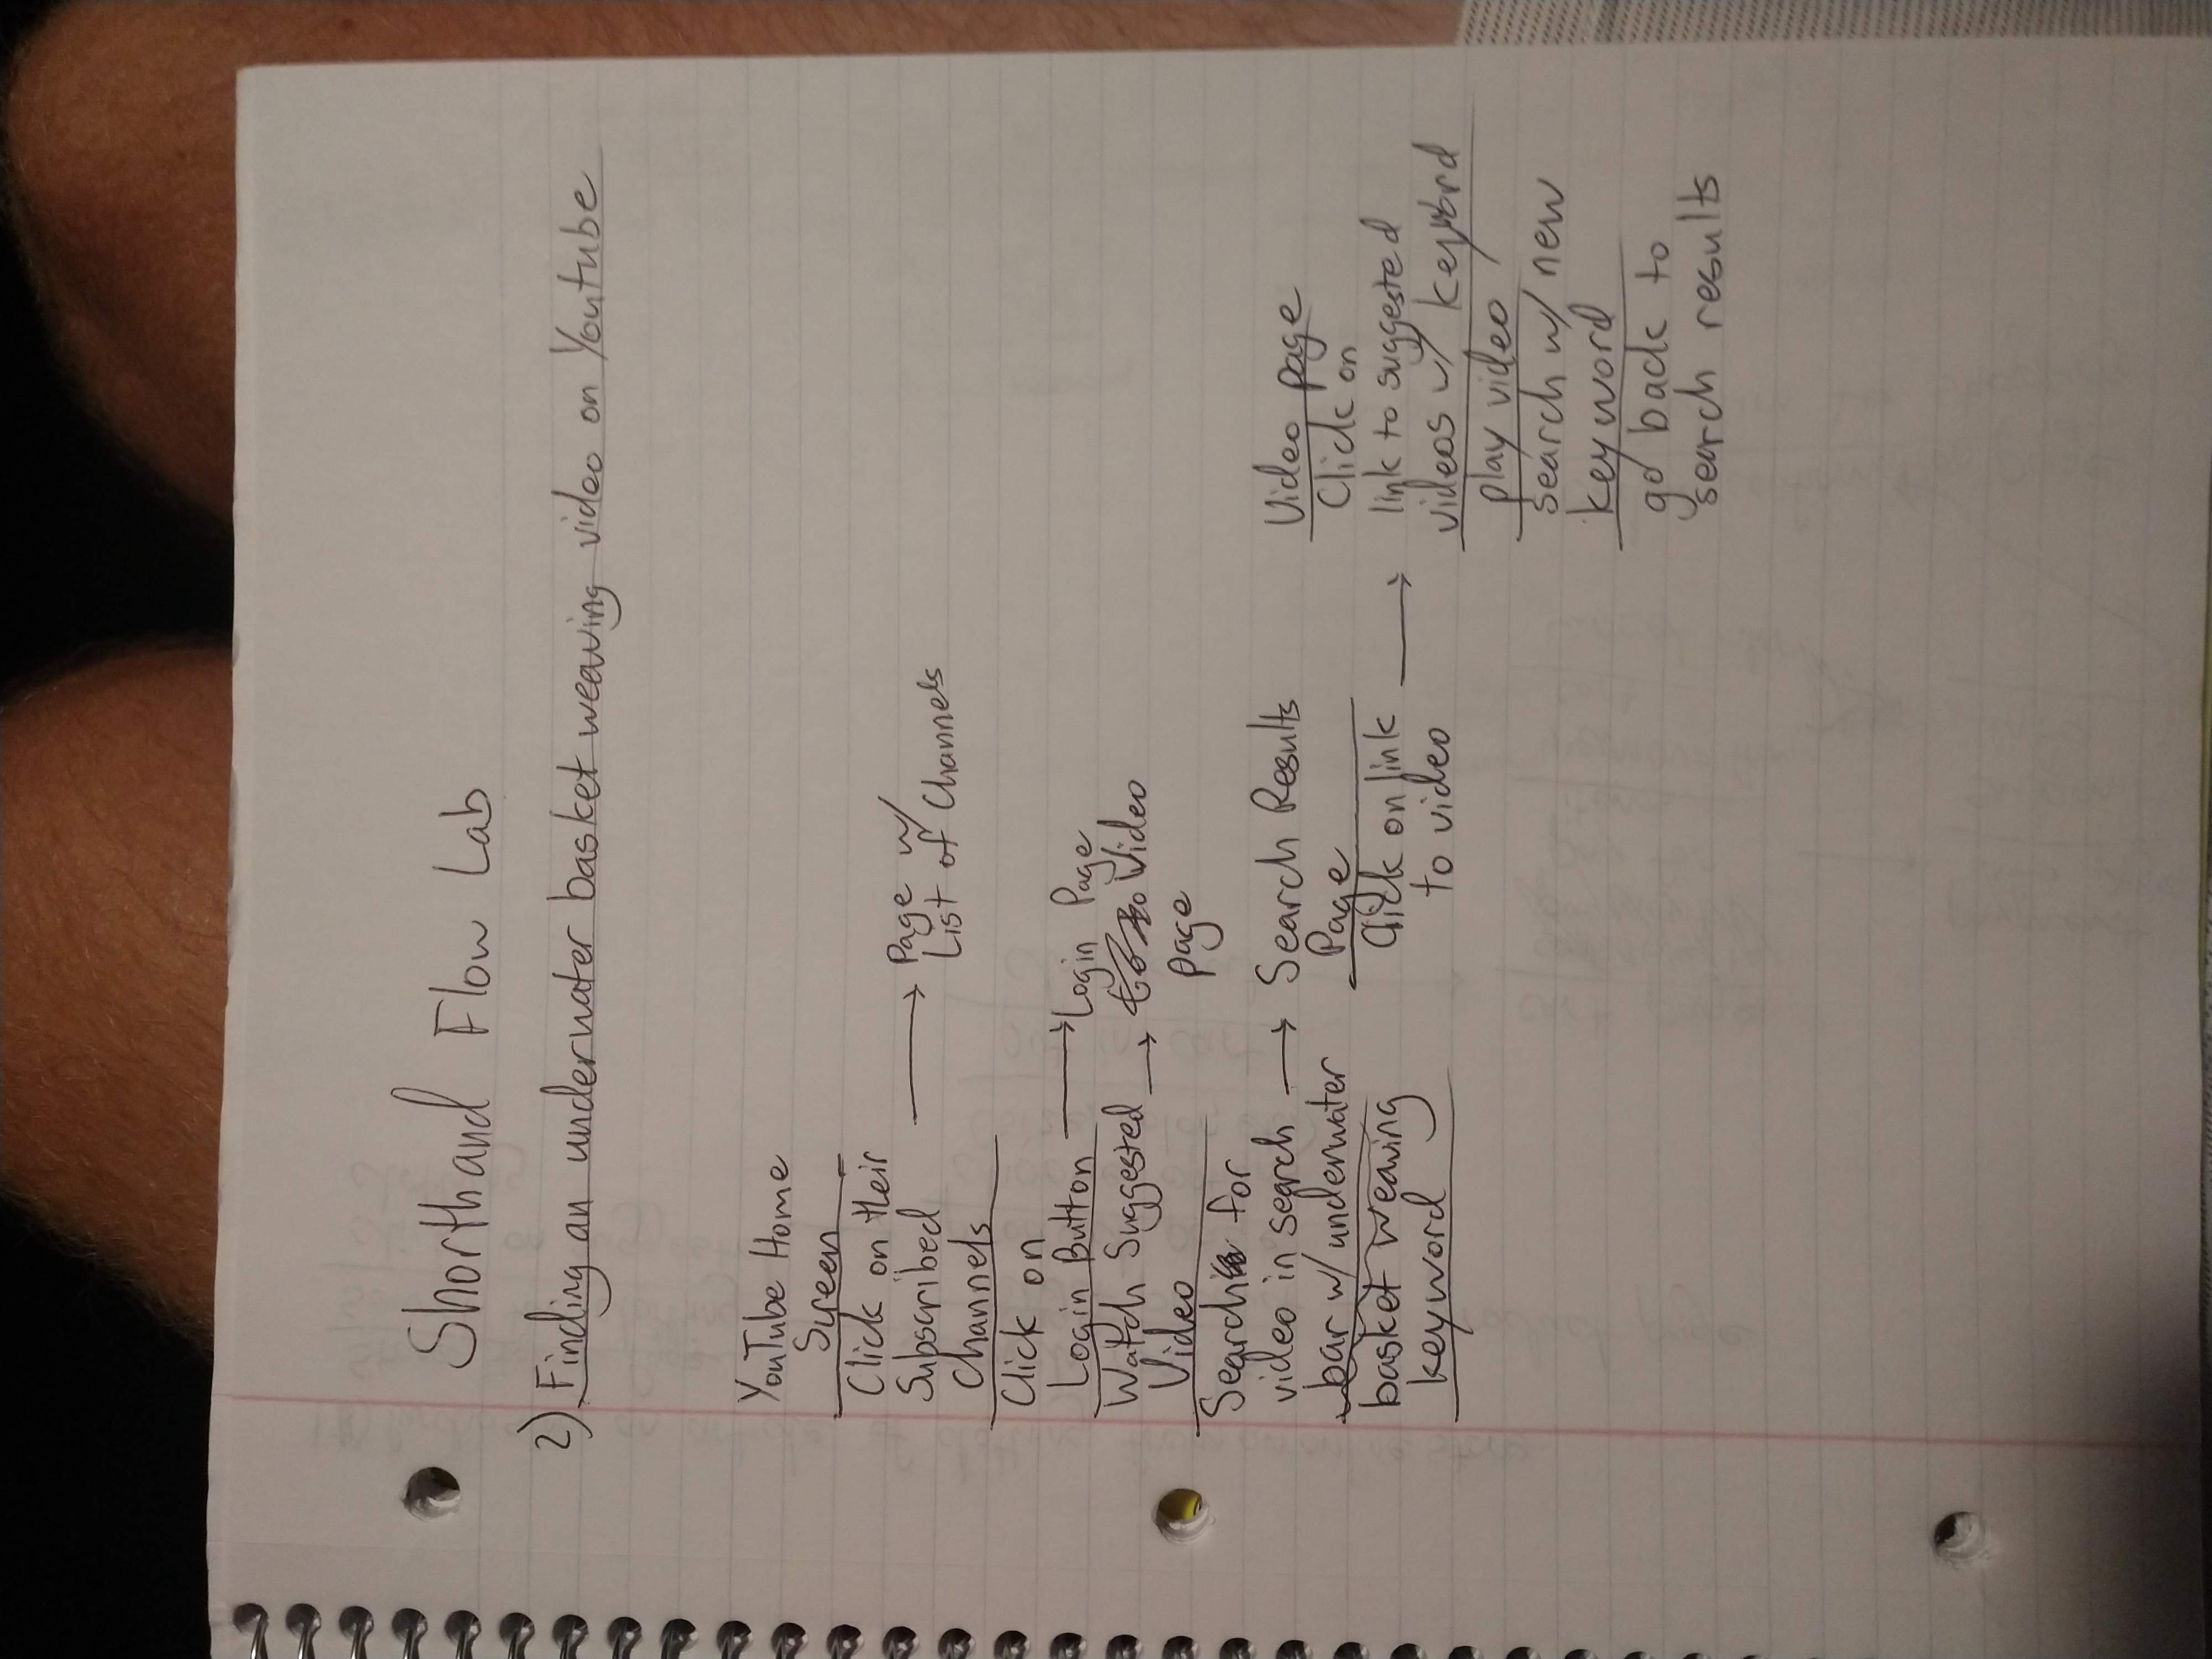 Shorthand Flow Lab
2) Finding an underwater basket weaving video on Youtube
YouTube Home
Screen
Click on their
Subscribed
Channels
Page w/
List of Channels
Click on
Login Button
Login Page
Watch Suggested
Video
Video
page
Search for
video in search
bar w/ underwater
basket weaving
keyword
Search Results
Page
Click on link
to video
Video page
Click on
link to suggested
videos w/ keyword
play video
search w/ new
keyword
go back to
search results